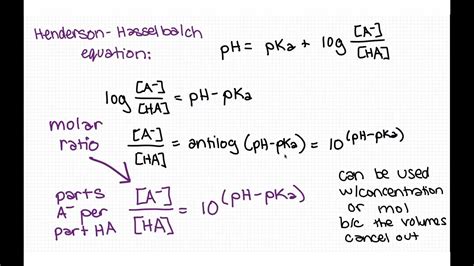 Henderson-Hasselbalch
equation:
pH = pKa + log [A⁻]/[HA]
log [A⁻]/[HA] = pH-pKa
molar
ratio
[A⁻]/[HA] = antilog (pH-pKa) = 10^(pH-pKa)
parts
A⁻ per
part HA
[A⁻]/[HA] = 10^(pH-pKa)
can be used
w/concentration
or mol
b/c the volumes
cancel out